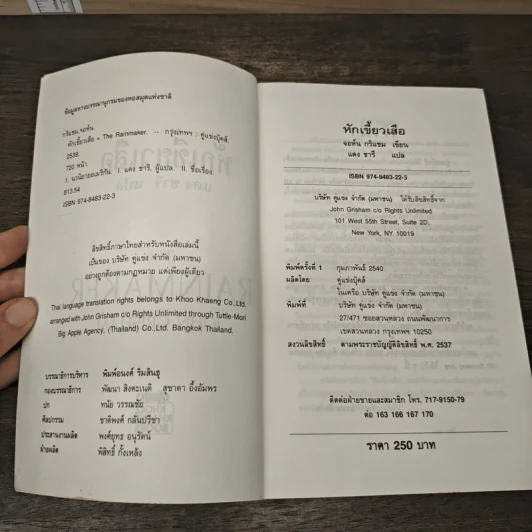 ข้อมูลทางบรรณานุกรมของหอสมุดแห่งชาติ
กริแชม, จอห์น.
หักเขี้ยวเสือ = The Rainmaker. -- กรุงเทพฯ : คู่แข่งบุ๊คส์,
2539.
720 หน้า.
1. นวนิยายอเมริกัน. I. แดง ชารี, ผู้แปล. II. ชื่อเรื่อง.
813.54
ISBN 974-8483-22-3
ลิขสิทธิ์ภาษาไทยสำหรับหนังสือเล่มนี้
เป็นของ บริษัท คู่แข่ง จำกัด (มหาชน)
อย่างถูกต้องตามกฎหมาย แต่เพียงผู้เดียว
Thai language translation rights belongs to Khoo Khaeng Co.,Ltd.
arranged with John Grisham c/o Rights Unlimited through Tuttle-Mori
Big Apple Agency, (Thailand) Co.,Ltd. Bangkok Thailand.
บรรณาธิการบริหาร พิมพ์อนงค์ ริมสินธุ
กองบรรณาธิการ พัฒนา สิงคะเนติ สุชาดา อึ้งอัมพร
ปก ทนัย วรรณชัย
ศิลปกรรม ชาติพงศ์ กลั่นปรีชา
ประสานงานผลิต พงศ์ยุทธ อนุรัตน์
ฝ่ายผลิต พิสิทธิ์ กั้งเหล้ง
หักเขี้ยวเสือ
จอห์น กริแชม เขียน
แดง ชารี แปล
ISBN 974-8483-22-3
บริษัท คู่แข่ง จำกัด (มหาชน) ได้รับลิขสิทธิ์จาก
John Grisham c/o Rights Unlimited
101 West 55th Street, Suite 2D.,
New York, NY 10019
พิมพ์ครั้งที่ 1 กุมภาพันธ์ 2540
ผลิตโดย คู่แข่งบุ๊คส์
ในเครือ บริษัท คู่แข่ง จำกัด (มหาชน)
พิมพ์ที่ บริษัท คู่แข่ง จำกัด (มหาชน)
27/471 ซอยสวนหลวง ถนนพัฒนาการ
เขตสวนหลวง กรุงเทพฯ 10250
สงวนลิขสิทธิ์ ตามพระราชบัญญัติลิขสิทธิ์ พ.ศ. 2537
ติดต่อฝ่ายขายและสมาชิก โทร. 717-9150-79
ต่อ 163 166 167 170
ราคา 250 บาท